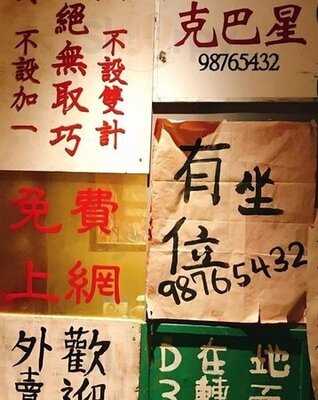 不設雙計
絕無取巧
不設加一
克巴星
98765432
免費
上網
有坐
位
98765432
歡迎
外賣
D在地
3轉